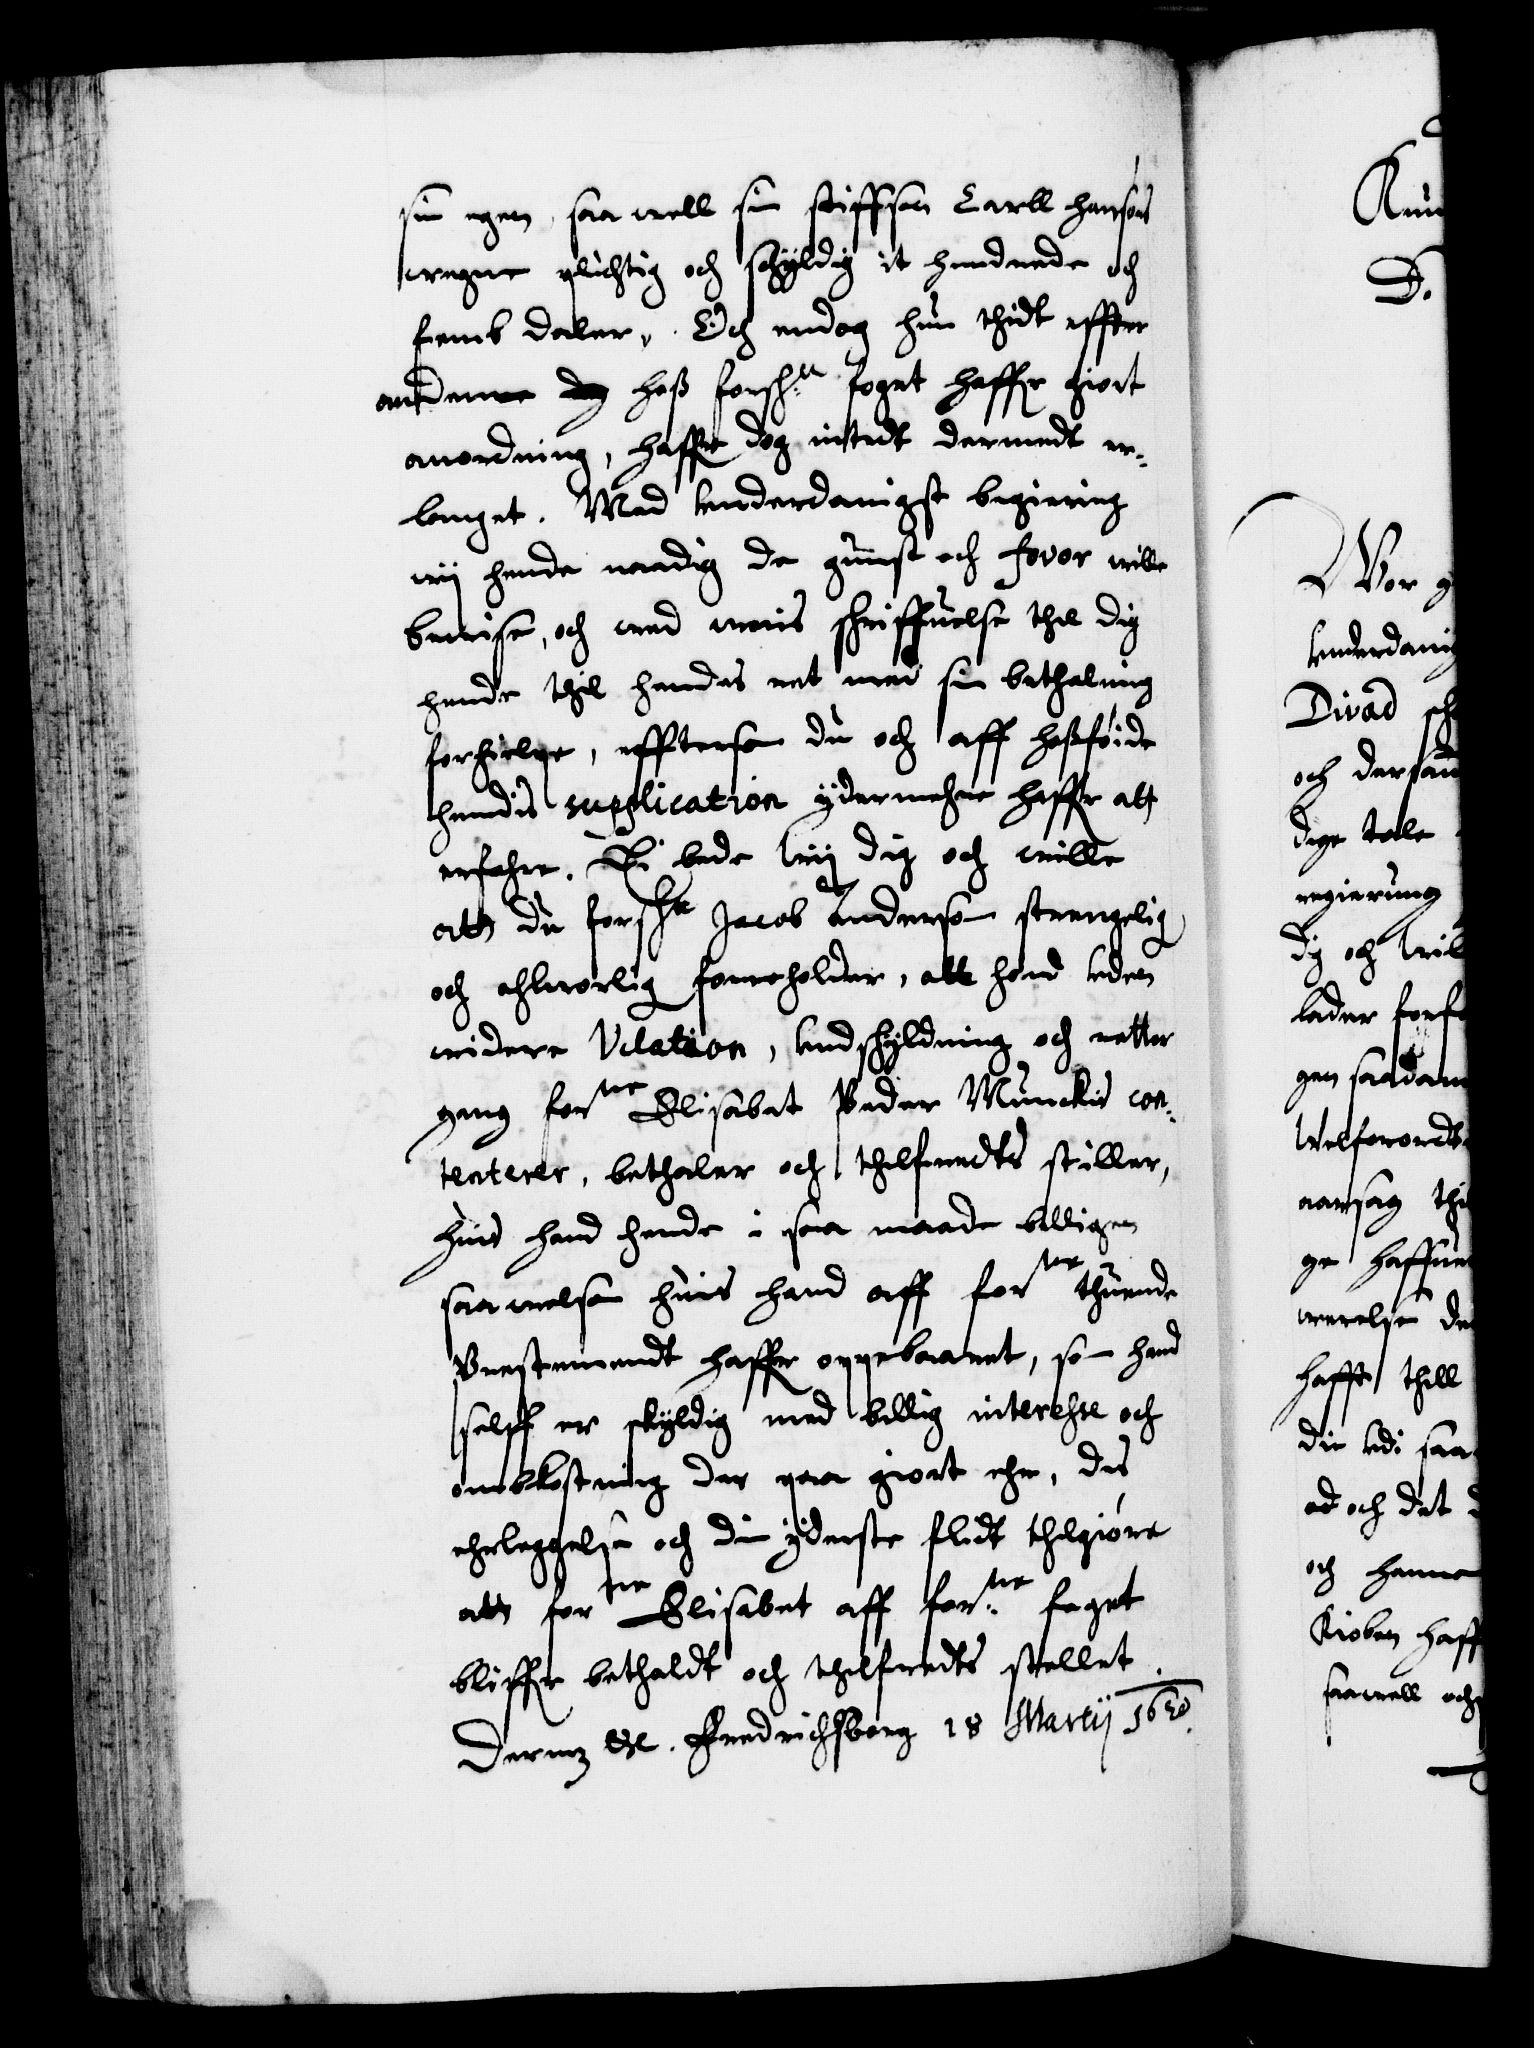 sin egen, saa well sin stiffson Carll Hansøns
wegne plichtig och schyldig it hundrede och
femb daler, Och endog hun thidt effter
anden hoß forsch:ne foget haffr giort
anordning, haffr dog intedt dermedt er-
langet. Med Underdanigst begiering
wij hende naadig de gunst och favor wille
bewise, och med woris schriffuelse thil dig
hende thil hendes ret med sin bethaling
forhielpe, effterson du och aff hoßføide
hendis supplication ÿdermehre haffr att
erfahre. Thi bede Wij dig och wille
att du forsch:ne Jacob Anderson strengelig
och alworlig foreholder, att hand uden
widere Vdlation, Undschyldning och retter
gang for:ne Elisabet Peder Munckis con-
tenterer, bethaler och thilfredts stiller,
huis hand hende i saa maade billigen
saa welsom huis hand aff for:ne thuende
Prestemendt haffr oppebaaret, som hand
selff er skyldig med billig interesse och
ombkostning der paa giort ehr, dis
ehrleggelse och din ÿderste flidt thilgiøre
att for:ne Elisabet aff for:ne foget
bliffr bethaldt och thilfredts stellet.
Dermz &c. Fredrichsborg 18 Martij 1630.
Vor g
Underdanig
Divad sch
och dersam
dige tale
regierung
dig och wil
lader forf
gen saadan
Welforordt
aarsag thi
ge haffue
werelse de
hafft thill
die Udi saa
ad och det d
och hanne
Kioben haff
saawell och